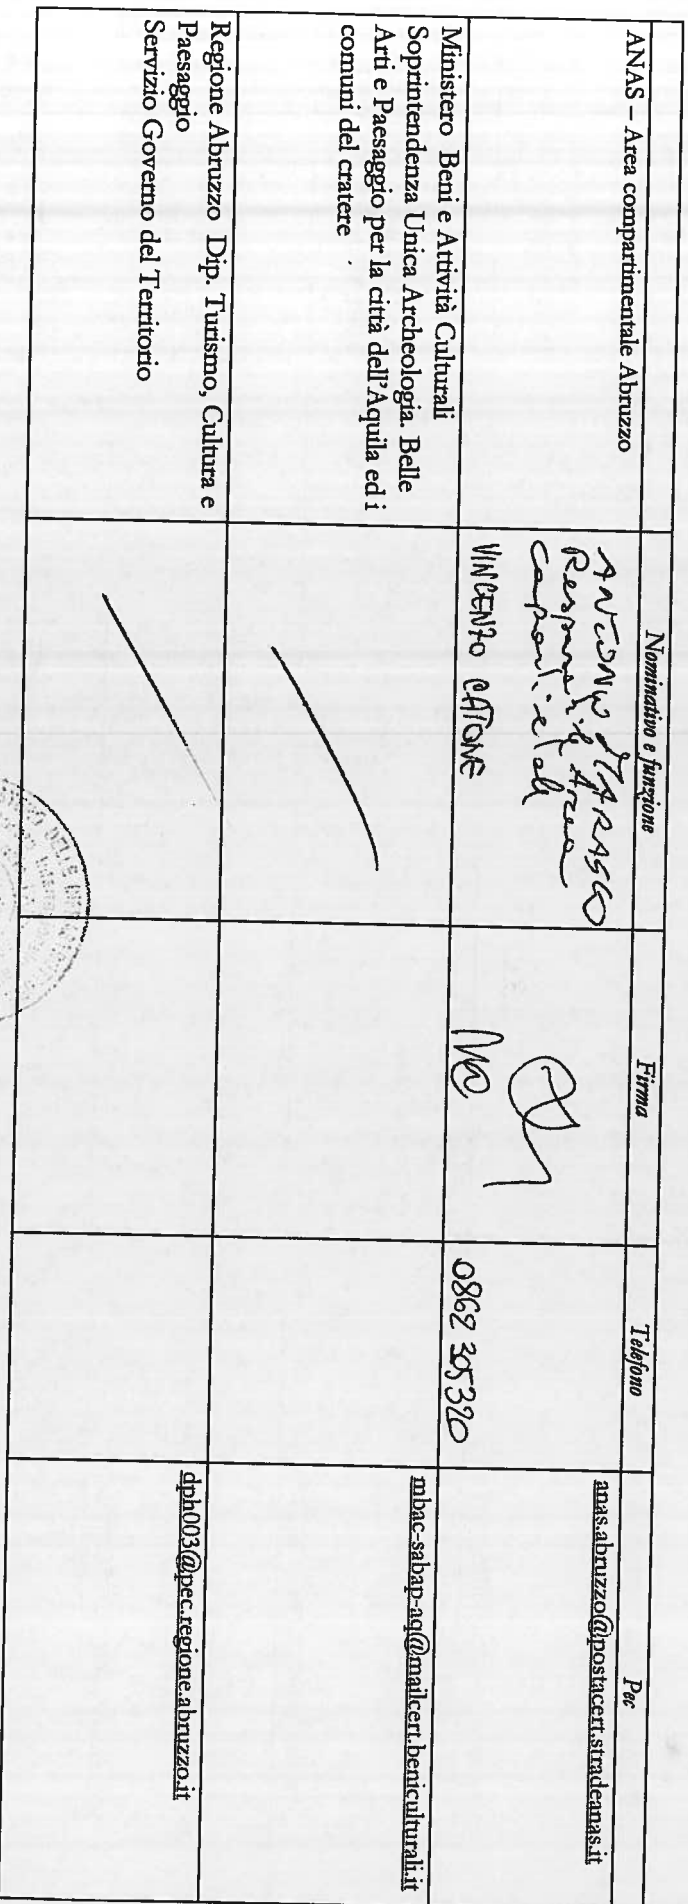 Nominativo e funzione
Firma
Telefono
Pec
ANAS – Area compartimentale Abruzzo
Responsabile Area
VINCENZO CATONE
0862 305320
anas.abruzzo@postacert.stradeanas.it
Ministero Beni e Attività Culturali
Soprintendenza Unica Archeologia. Belle
Arti e Paesaggio per la città dell'Aquila ed i
comuni del cratere
mbac-sabap-aq@mailcert.beniculturali.it
Regione Abruzzo Dip. Turismo, Cultura e
Paesaggio
Servizio Governo del Territorio
dph003@pec.regione.abruzzo.it